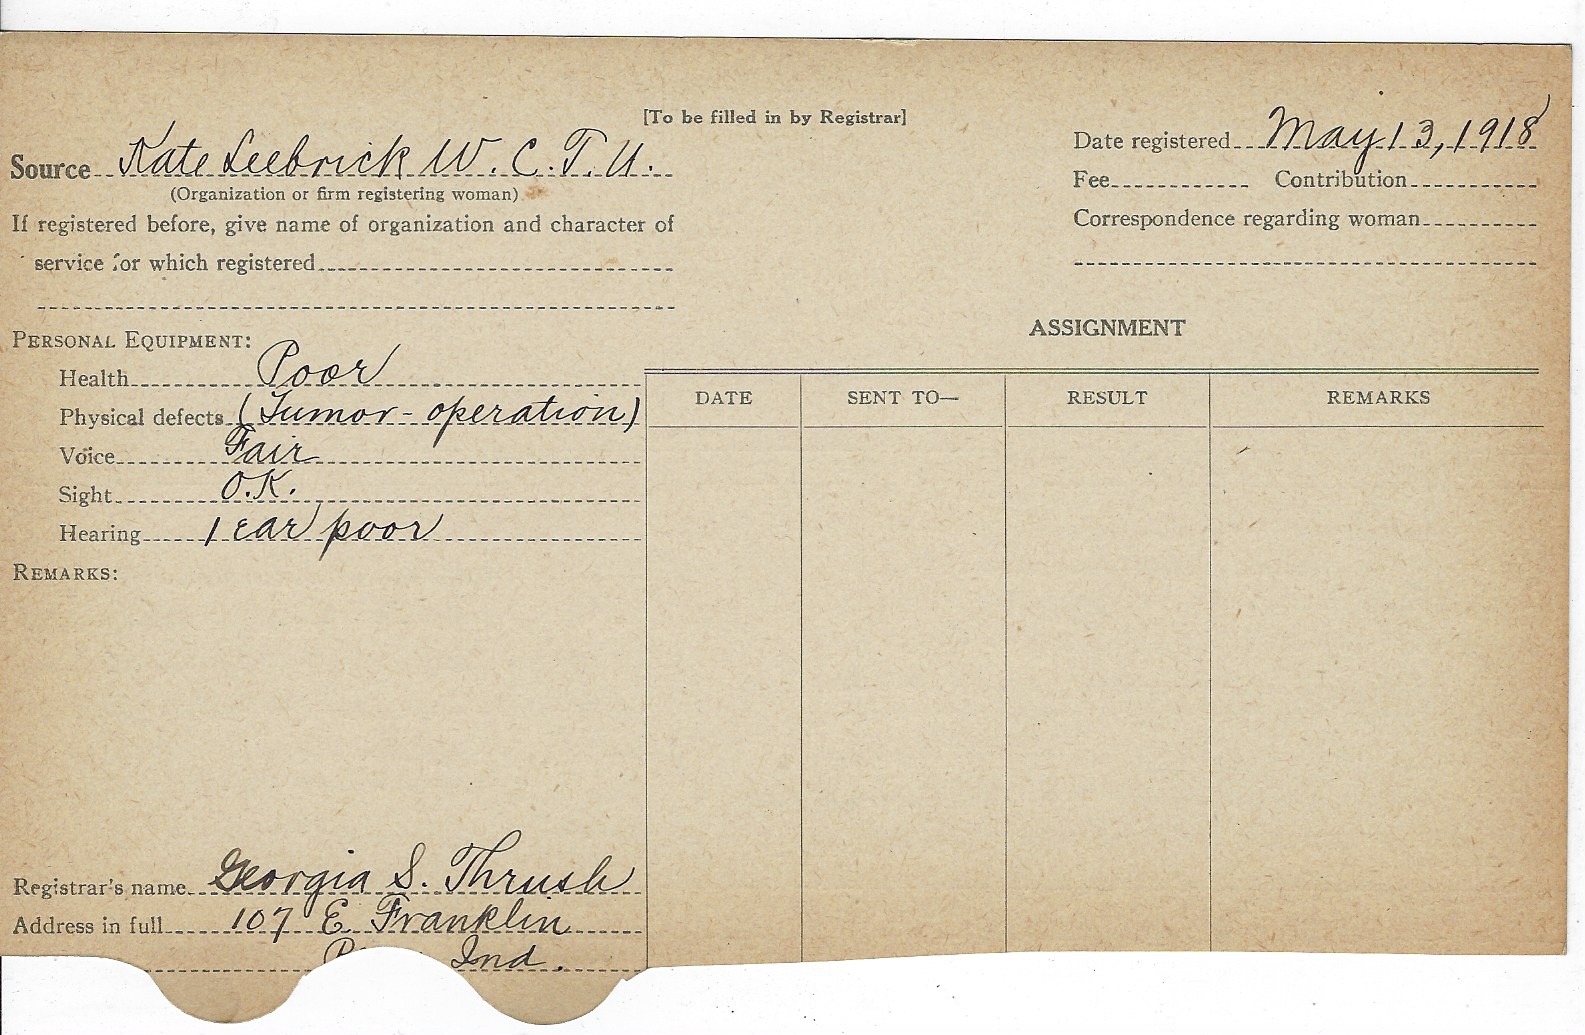 [To be filled in by Registrar]
Source Kate Seebrick W. C. T. U.
(Organization or firm registering woman)
If registered before, give name of organization and character of
service for which registered
Date registered May 13, 1918
Fee Contribution
Correspondence regarding woman
PERSONAL EQUIPMENT:
Health Poor
Physical defects (Tumor - operation)
Voice Fair
Sight O.K.
Hearing 1 ear poor
REMARKS:
ASSIGNMENT
DATE SENT TO— RESULT REMARKS
Registrar's name Georgia S. Thrush
Address in full 107 E Franklin
Ind.